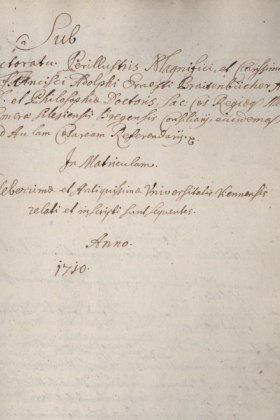 Sub
ctoratu Perillustris Magnifici, et
Francisci Adolphi Ernesti Breitenbücher
et Philosophiæ Doctoris, Sac.
Silesiensis Bregensis Consiliarij,
Aulam Cæsaream Referendarij.
In Matriculam.
leberrimæ et Antiquissimæ Universitatis Viennensis
relati et inscripti sunt sequentes.
Anno.
1710.